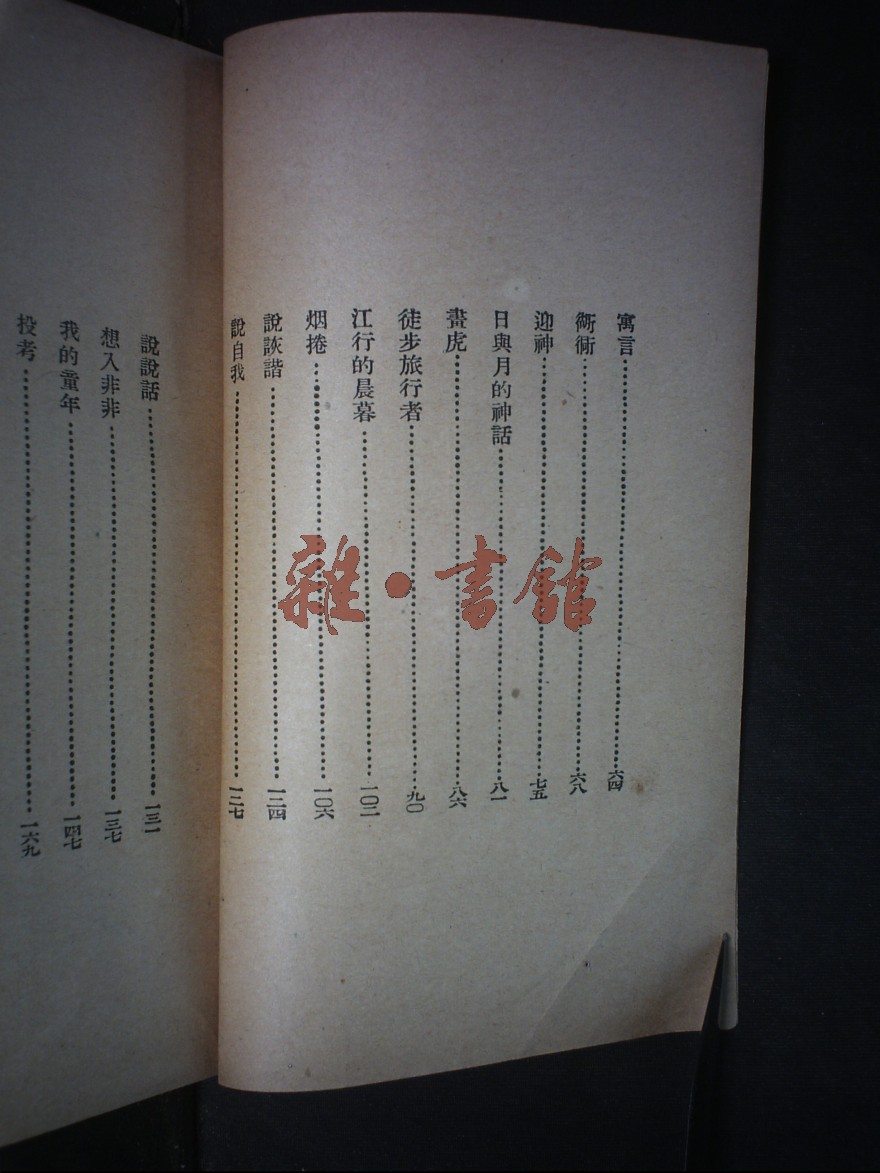 寓言……六四
衚衕……六八
迎神……七五
日與月的神話……八一
畫虎……八六
徒步旅行者……九〇
江行的晨暮……一〇二
烟捲……一〇六
說詼諧……一二四
說自我……一二七
說說話……一三一
想入非非……一三七
我的童年……一四七
投考……一六九
雜•書館